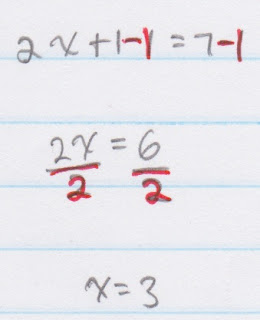 2x+1-1=7-1
2x=6
2 2
x=3